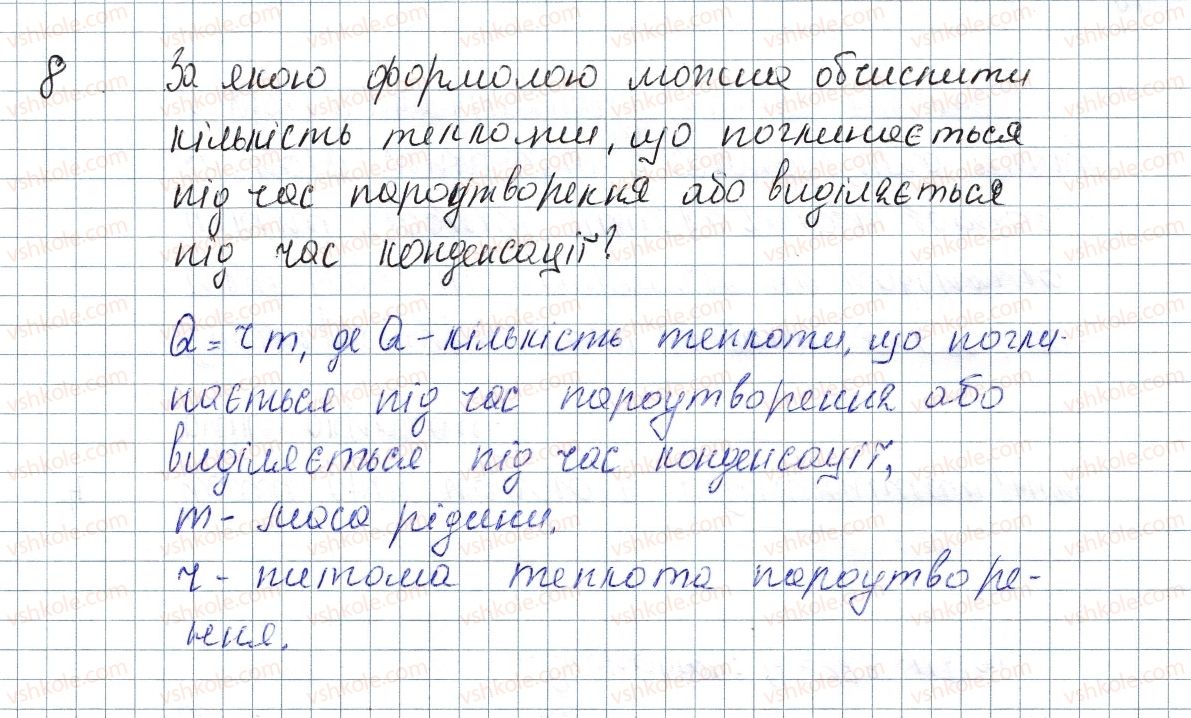 8 За якою формолою можна обчислити
кількість теплоти, що поглинається
під час пароутворення або виділяється
під час конденсації?
Q = rm, де Q - кількість теплоти, що погли-
нається під час пароутворення або
виділяється під час конденсації,
m - маса рідини.
r - питома теплота пароутворе-
ння.